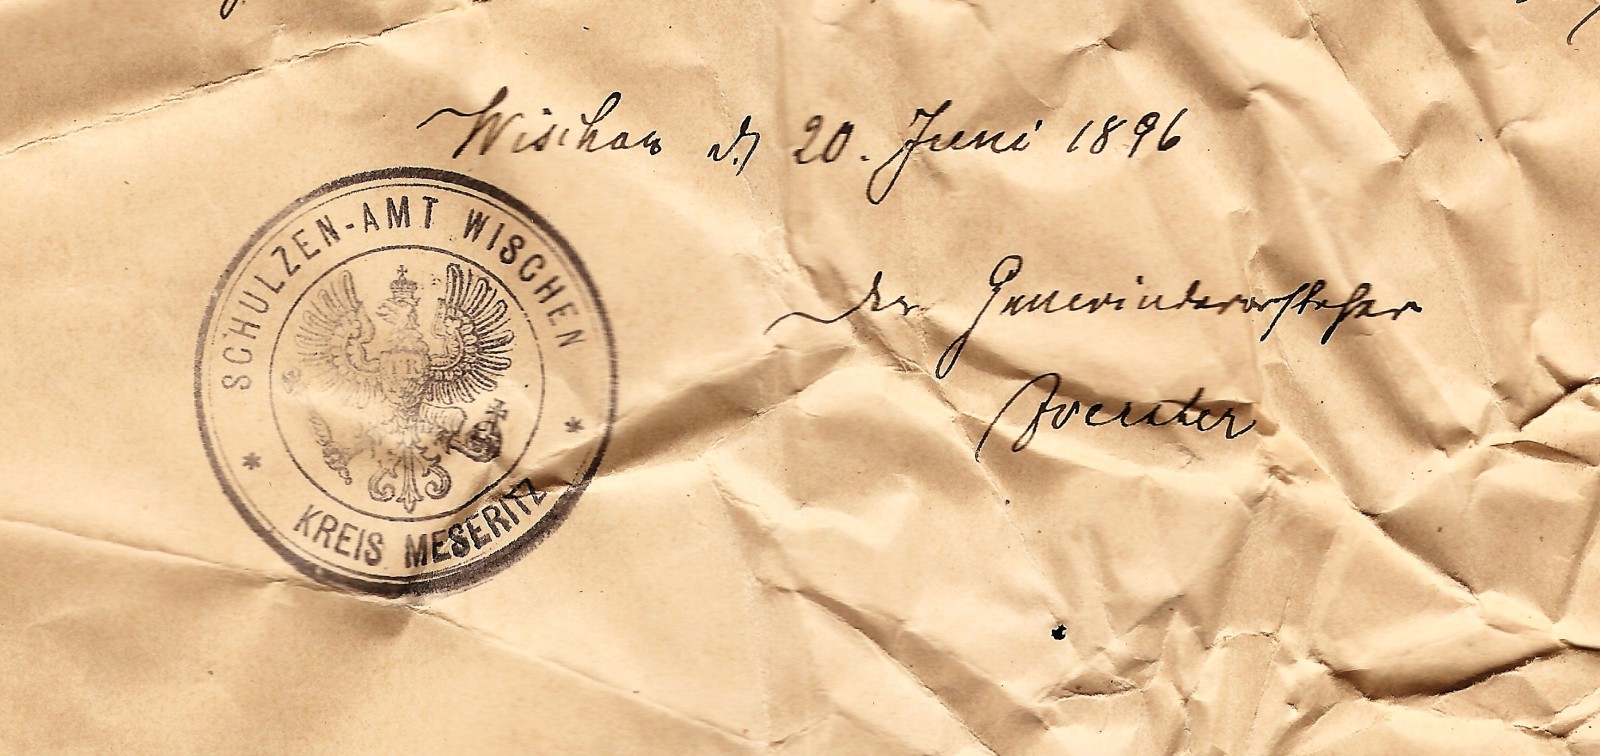 Wischen d. 20. Juni 1896
SCHULZEN-AMT WISCHEN
* KREIS MESERITZ *
Der Gemeindevorsteher